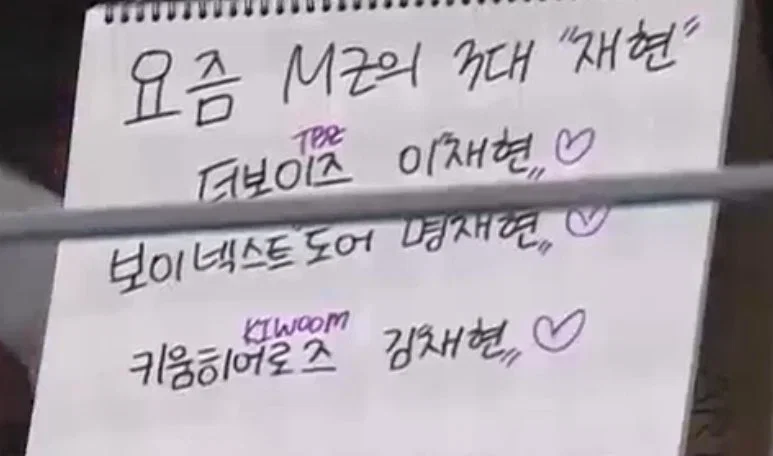 요즘 MZ의 3대 "재현"
TBZ
더보이즈 이"재현" ♡
보이넥스트도어 명"재현" ♡
KIWOOM
키움히어로즈 김"재현" ♡